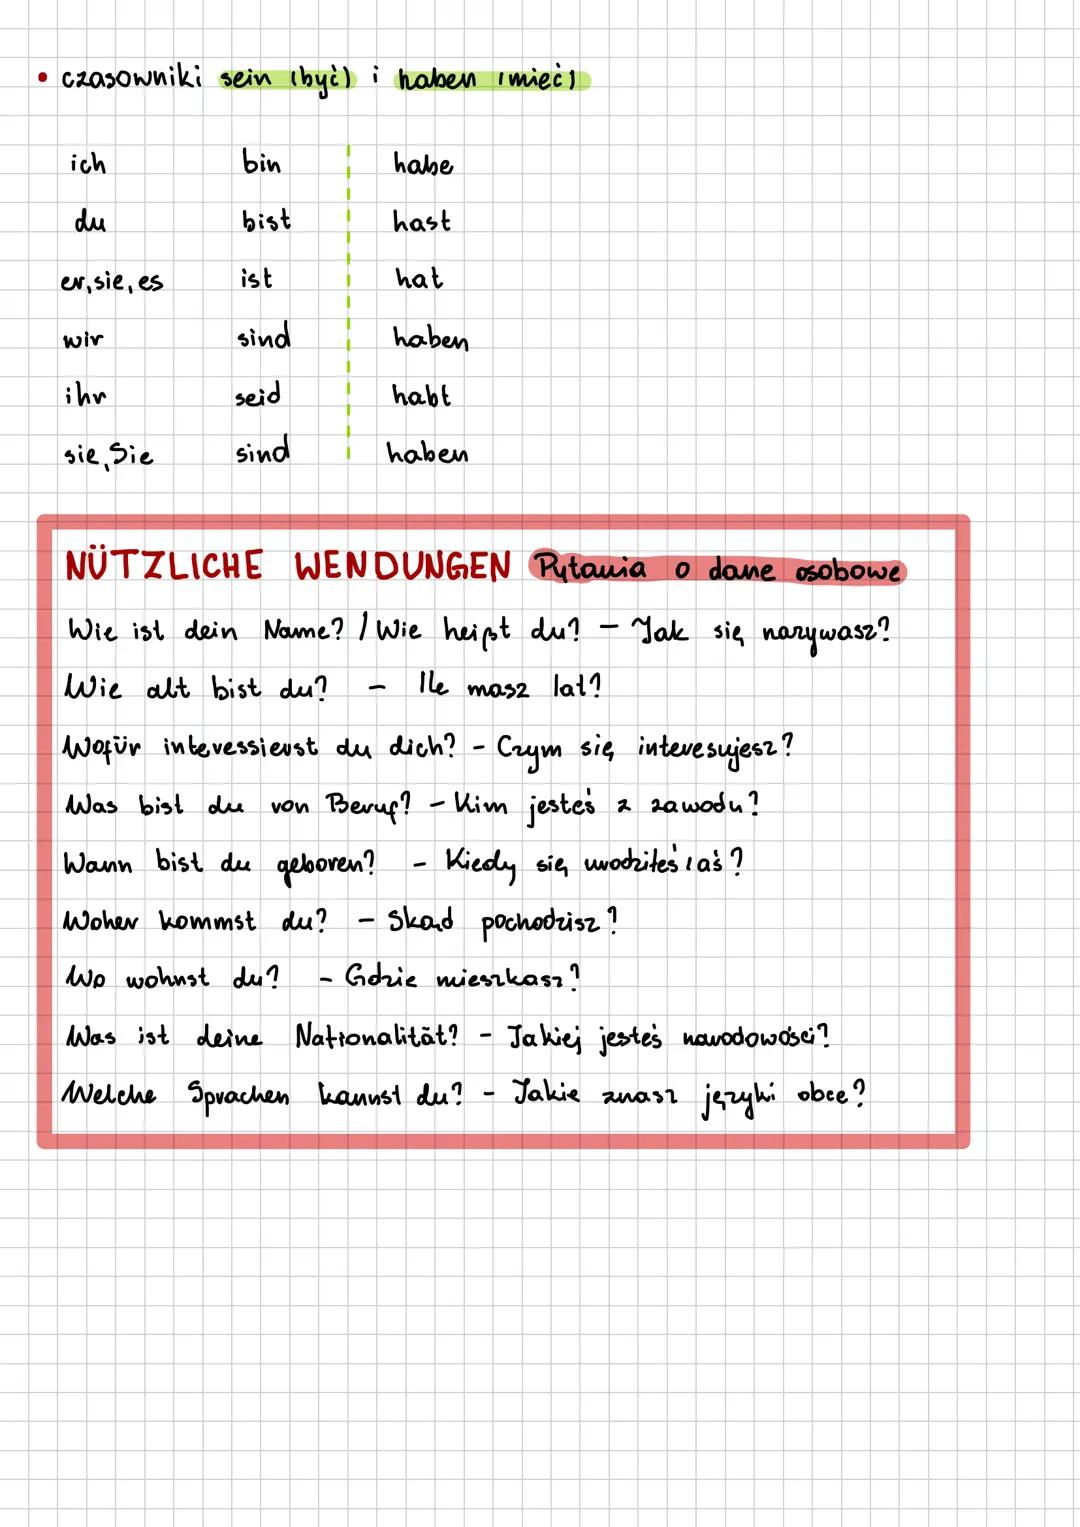 • czasowniki sein (być) i haben (mieć)
ich bin habe
du bist hast
er, sie, es ist hat
wir sind haben
ihr seid habt
sie, Sie sind haben
NÜTZLICHE WENDUNGEN Pytania o dane osobowe
Wie ist dein Name? / Wie heißt du? – Jak się nazywasz?
Wie alt bist du? – Ile masz lat?
Wofür interessierst du dich? - Czym się interesujesz?
Was bist du von Beruf? - Kim jesteś z zawodu?
Wann bist du geboren? - Kiedy się urodziłeś/aś?
Woher kommst du? - Skąd pochodzisz?
Wo wohnst du? - Gdzie mieszkasz?
Was ist deine Nationalität? - Jakiej jesteś narodowości?
Welche Sprachen kannst du? - Jakie znasz języki obce?